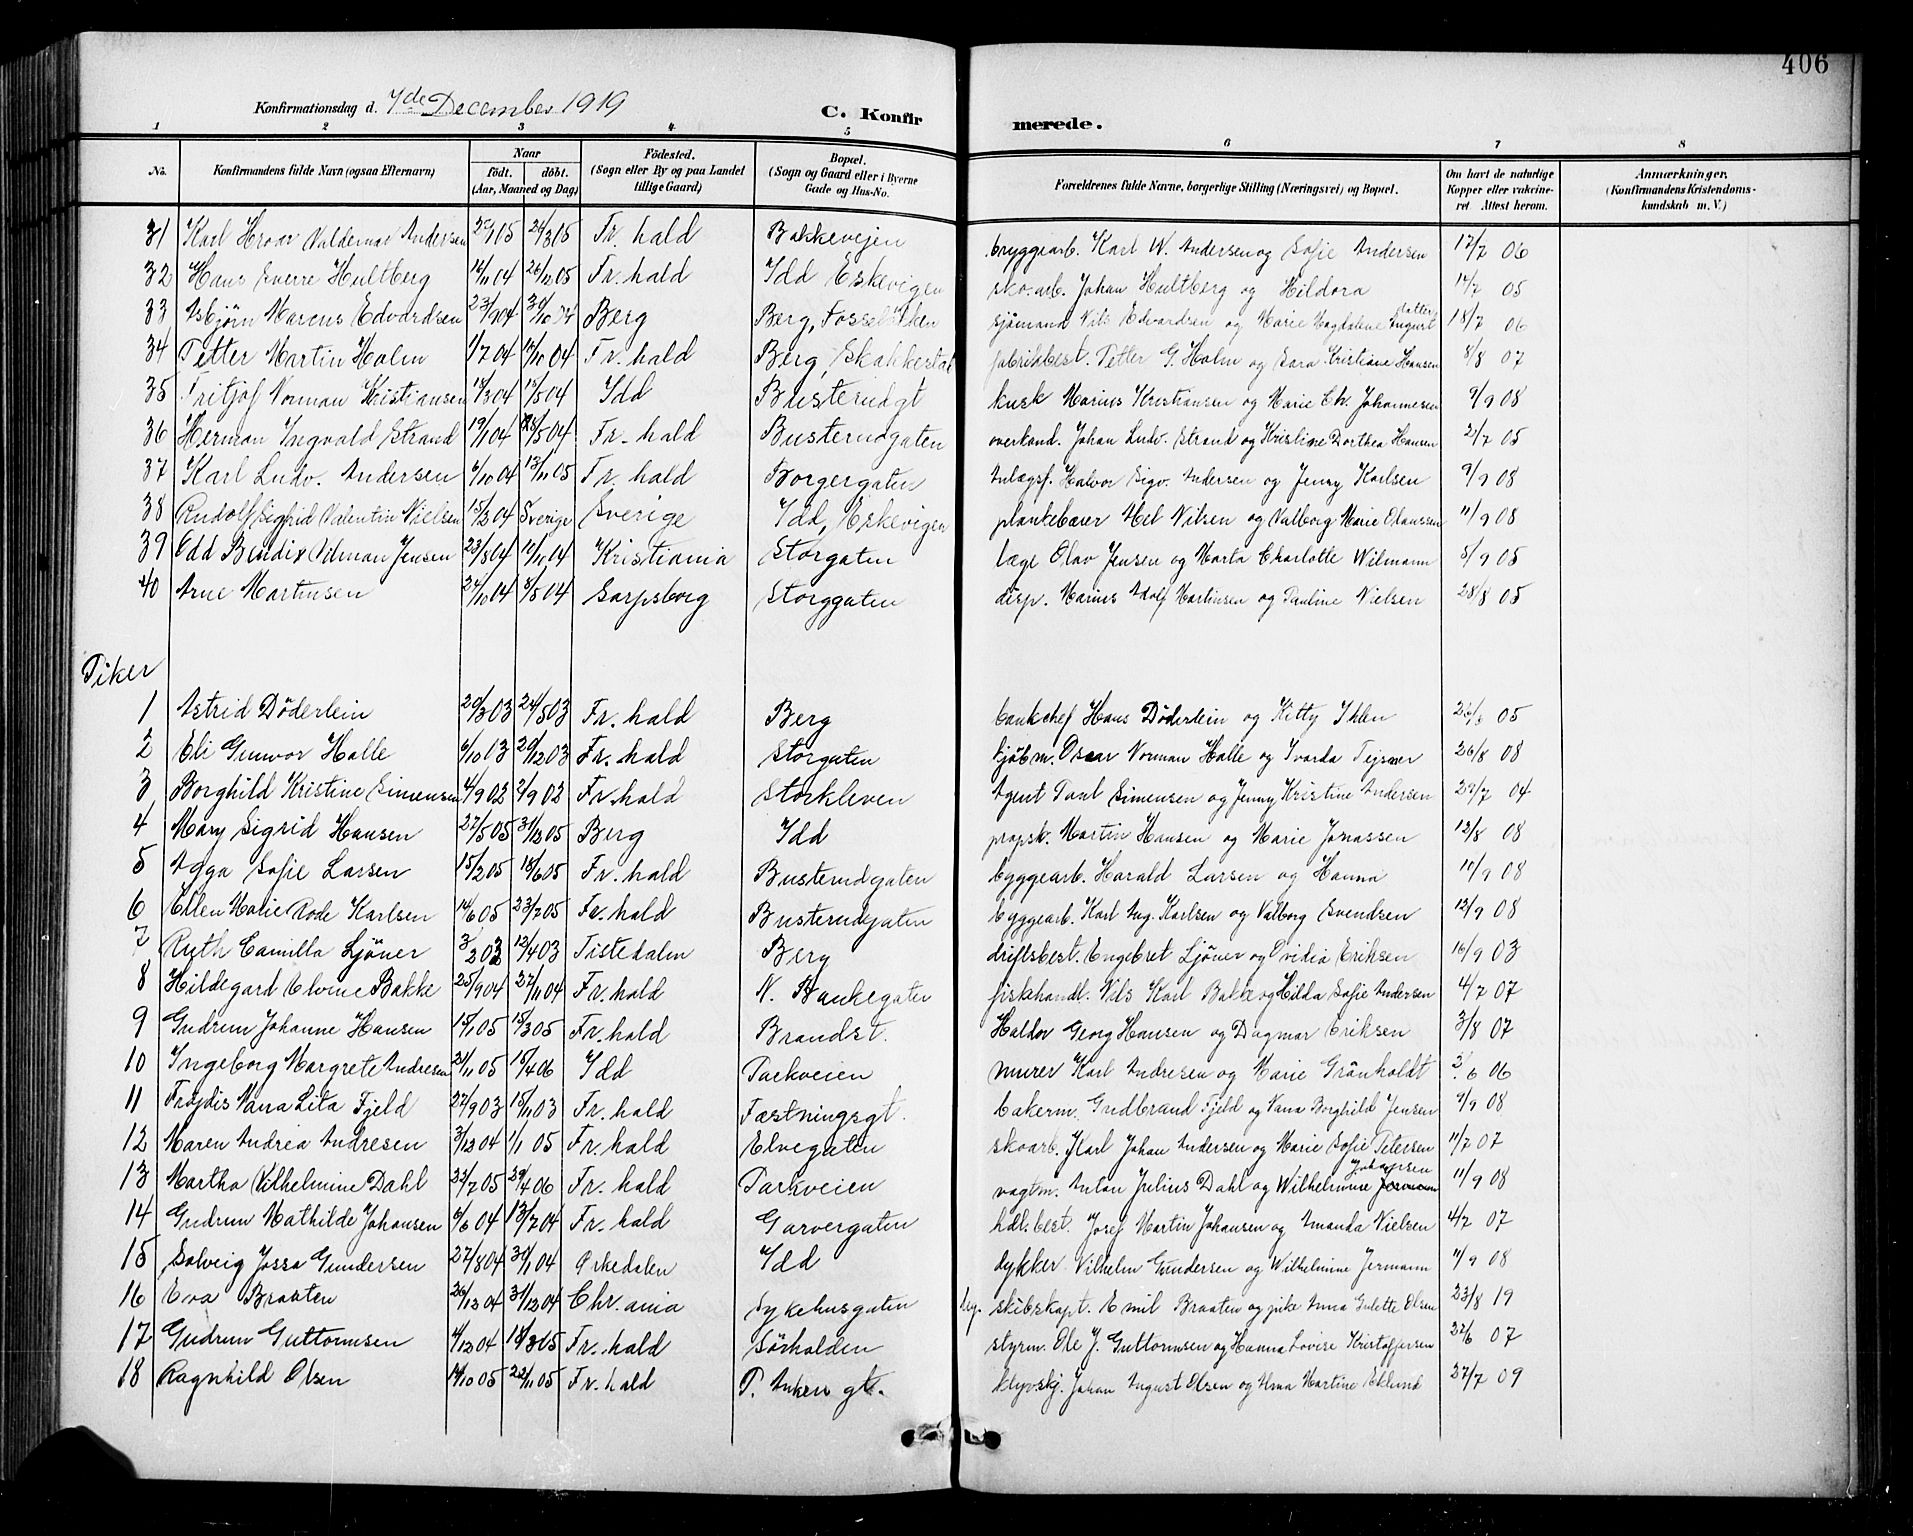 406
Konfirmationsdag d. 7de December 1919 C. Konfirmerede.
1 2 3 4 5 6 7 8
No. Konfirmandens fulde Navn (ogsaa Efternavn) Naar födt. döbt. (Aar, Maaned og Dag) Födested. (Sogn eller By og paa Landet tillige Gaard) Bopæl. (Sogn og Gaard eller i Byerne Gade og Hus-No. Forældrenes fulde Navne, borgerlige Stilling (Næringsvei) og Bopæl. Om havt de naturlige Kopper eller vakcineret Attest herom. Anmærkninger. (Konfirmandens Kristendomskundskab m. V.)
31 Karl Hroar Valdemar Andersen 24/3 05 Fr. hald Bakkevejen bryggearb. Karl W. Andersen og Sofie Andersen 17/7 06
32 Hans Sverre Hultberg 14/11 04 26/12 05 Fr. hald Idd Eskevigen sko.arb. Johan Hultberg og Hildora 14/7 05
33 Asbjörn Marcus Edvardsen Berg Berg, Fosselökken sjömand Nils Edvardsen og Marie Magdalene August datter 18/7 06
34 Petter Martin Holm 1/7 04 16/10 04 Fr. hald Berg, Skakkestad fabrikbest. Petter G. Holm og Sara Kristiane Hansen 8/8 07
35 Fritjof Norman Kristiansen 18/3 04 15/5 04 Idd Busterudgt kusk Marius Kristiansen og Marie Chr. Johannesen 9/9 08
36 Herman Ingvald Strand 19/1 04 28/5 04 Fr. hald Busterudgaten overkond. Johan Ludv. Strand og Kristine Dorthea Hansen 2/7 05
37 Karl Ludv. Andersen 6/10 04 13/11 05 Fr. hald Borgergaten Anlægsf. Halvor Sigv. Andersen og Jenny Karlsen 9/9 08
38 Rudolf Sigfrid Valentin Nielsen 15/2 04 Sverige Sverige Idd, Eskevigen plankebærer Nils Nilsen og Valborg Marie Olaussen 11/9 08
39 Odd Bendix Vilman Jensen 23/8 04 12/11 04 Kristiania Storgaten læge Olav Jensen og Marta Charlotte Wilmann 5/9 05
40 Arne Martinsen 8/5 04 Sarpsborg Storggaten disp. Marius Adolf Martinsen og Pauline Nielsen 28/8 05
Piker
1 Astrid Döderlein 20/3 03 24/5 03 Fr. hald Berg bankchef Hans Döderlein og Kitty Ihlen 05
2 Eli Gunvor Halle 6/10 03 20/12 03 Fr. hald Storgaten kjöbm. Oscar Norman Halle og Ivarda Tejsner 26/8 08
3 Borghild Kristine Simensen 4/9 02 2/9 02 Fr. hald Storkleven Agent Paul Simensen og Jenny Kristine Andersen 29/7 04
4 Mary Sigrid Hansen 27/5 05 31/12 05 Berg Idd propsk. Martin Hansen og Marie Jonassen 12/8 08
5 Agga Sofie Larsen 15/2 05 18/6 05 Fr. hald Busterudgaten byggearb. Harald Larsen og Hanna 11/9 08
6 Ellen Marie Rode Karlsen 14/6 05 23/7 05 Fr. hald Busterudgaten byggearb. Karl Aug. Karlsen og Valborg Svendsen 12/9 08
7 Ruth Camilla Ljöner 3/2 03 12/4 03 Tistedalen Berg driftsbest. Engebret Ljöner og Ovidia Eriksen 16/9 03
8 Hildegard Elvine Bakke 25/9 04 27/11 04 Fr. hald N. Bankegaten fiskhandl. Nils Karl Bakke og Hilda Sofie Andersen 4/7 07
9 Gudrun Johanne Hansen 15/1 05 15/3 05 Fr. hald Brandst. Haldor Georg Hansen og Dagmar Eriksen 3/8 07
10 Ingeborg Margrete Andresen 21/11 05 15/4 06 Idd Parkveien murer Karl Andresen og Marie Grönholdt 06
11 Frøydis Nana Lita Fjeld 27/9 03 15/11 03 Fr. hald Fæstningsgt. bakerm. Gudbrand Fjeld og Nana Borghild Jensen 9/9 08
12 Maren Andrea Andresen 3/12 04 1/1 05 Fr. hald Elvegaten skoarb. Karl Johan Andersen og Marie Sofie Petersen 11/7 07
13 Martha Vilhelmine Dahl 22/7 05 29/4 06 Fr. hald Parkveien vagtm. Anton Julius Dahl og Wilhelmine Johansen 11/9 08
14 Gudrun Mathilde Johansen 6/6 04 13/7 04 Fr. hald Garvergaten hdl.best. Josef Martin Johansen og Amanda Nielsen 4/7 07
15 Solveig Jossa Gundersen 27/8 04 30/1 04 Orkedalen Idd dykker Vilhelm Gundersen og Wilhelmine Jermann 11/9 08
16 Eva Braaten 26/12 04 31/12 04 Chr.ania Sykehusgaten skibskapt. Emil Braaten og pike Anna Gulette Olsen 23/8 19
17 Gudrun Guttormsen 4/12 04 18/3 05 Fr. hald Sörhalden styrm. Ole J. Guttormsen og Hanna Lovise Kristoffersen 22/6 07
18 Ragnhild Olsen 14/10 05 22/11 05 Fr. hald P. Ankers gt. Johan August Olsen og Alma Martine Eklund 27/7 09